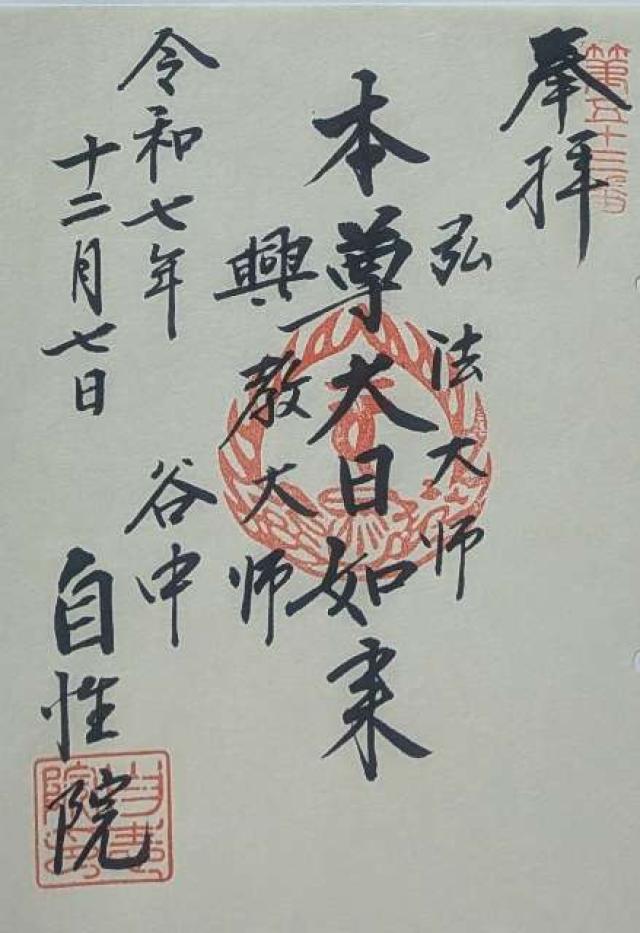 奉拝
第五十三番
弘法大师
本尊大日如来
興教大师
令和七年
十二月七日
谷中
自性院